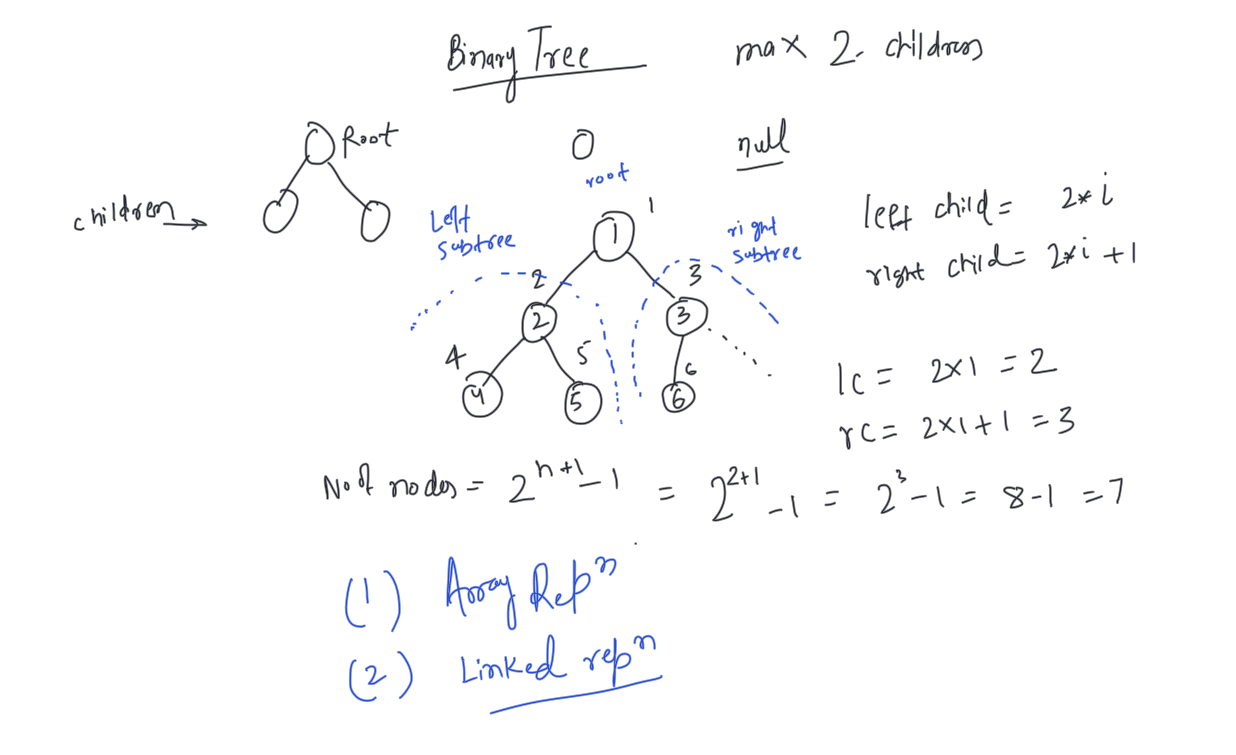 Binary Tree
max 2 children
Root
children
null
root
Left
subtree
right
subtree
1
1
2
3
2
3
4
5
6
4
5
6
left child = 2*i
right child = 2*i + 1
lc = 2x1 = 2
rc = 2x1+1 = 3
No of nodes = 2^h+1 - 1 = 2^2+1 - 1 = 2^3 - 1 = 8-1 = 7
(1) Array Rep^n
(2) Linked rep^n